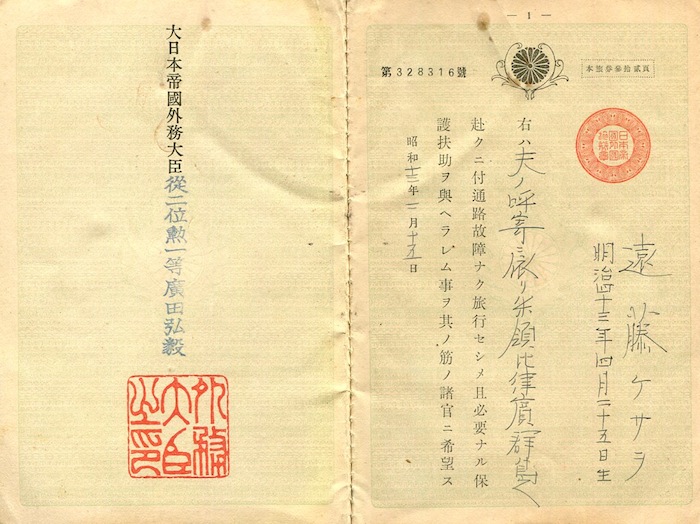 — 1 —
本旅券參拾貳頁
第328316號
遠藤ケサラ
明治四十三年四月二十五日生
右ハ夫ノ呼寄ニ依リ米領比律賓群島ヘ
赴クニ付通路故障ナク旅行セシメ且必要ナル保
護扶助ヲ與ヘラレム事ヲ其ノ筋ノ諸官ニ希望ス
昭和十三年 月十五日
大日本帝國外務大臣從二位勲一等廣田弘毅
外務大臣之印